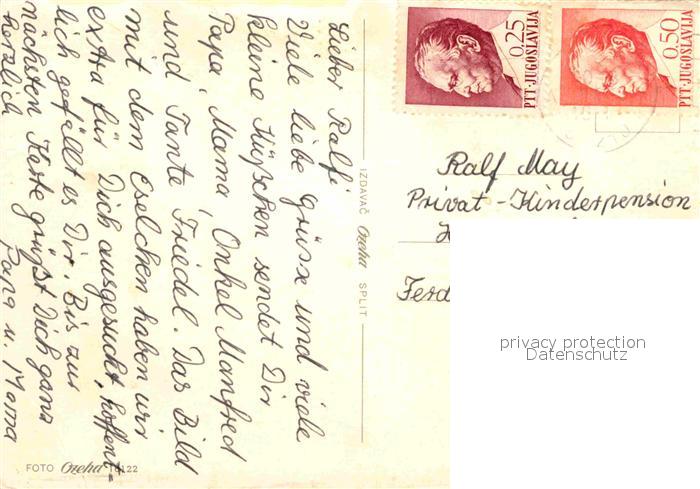 Lieber Ralfi
Viele liebe grüsse und viele
kleine Küßchen sendet Dir
Papa, Mama, Onkel Manfred
und Tante Friedel. Das Bild
mit dem Eselchen haben wir
extra für Dich ausgesucht, hoffent=
lich gefällt es Dir. Bis zur
nächsten Karte grüßt Dich ganz
herzlich
Papa u. Mama
FOTO Ozeha 16122
IZDAVAČ Ozeha SPLIT
0.25
PTT-JUGOSLAVIJA
0.50
PTT-JUGOSLAVIJA
Ralf May
Privat-Kinderpension
Ferd
privacy protection
Datenschutz